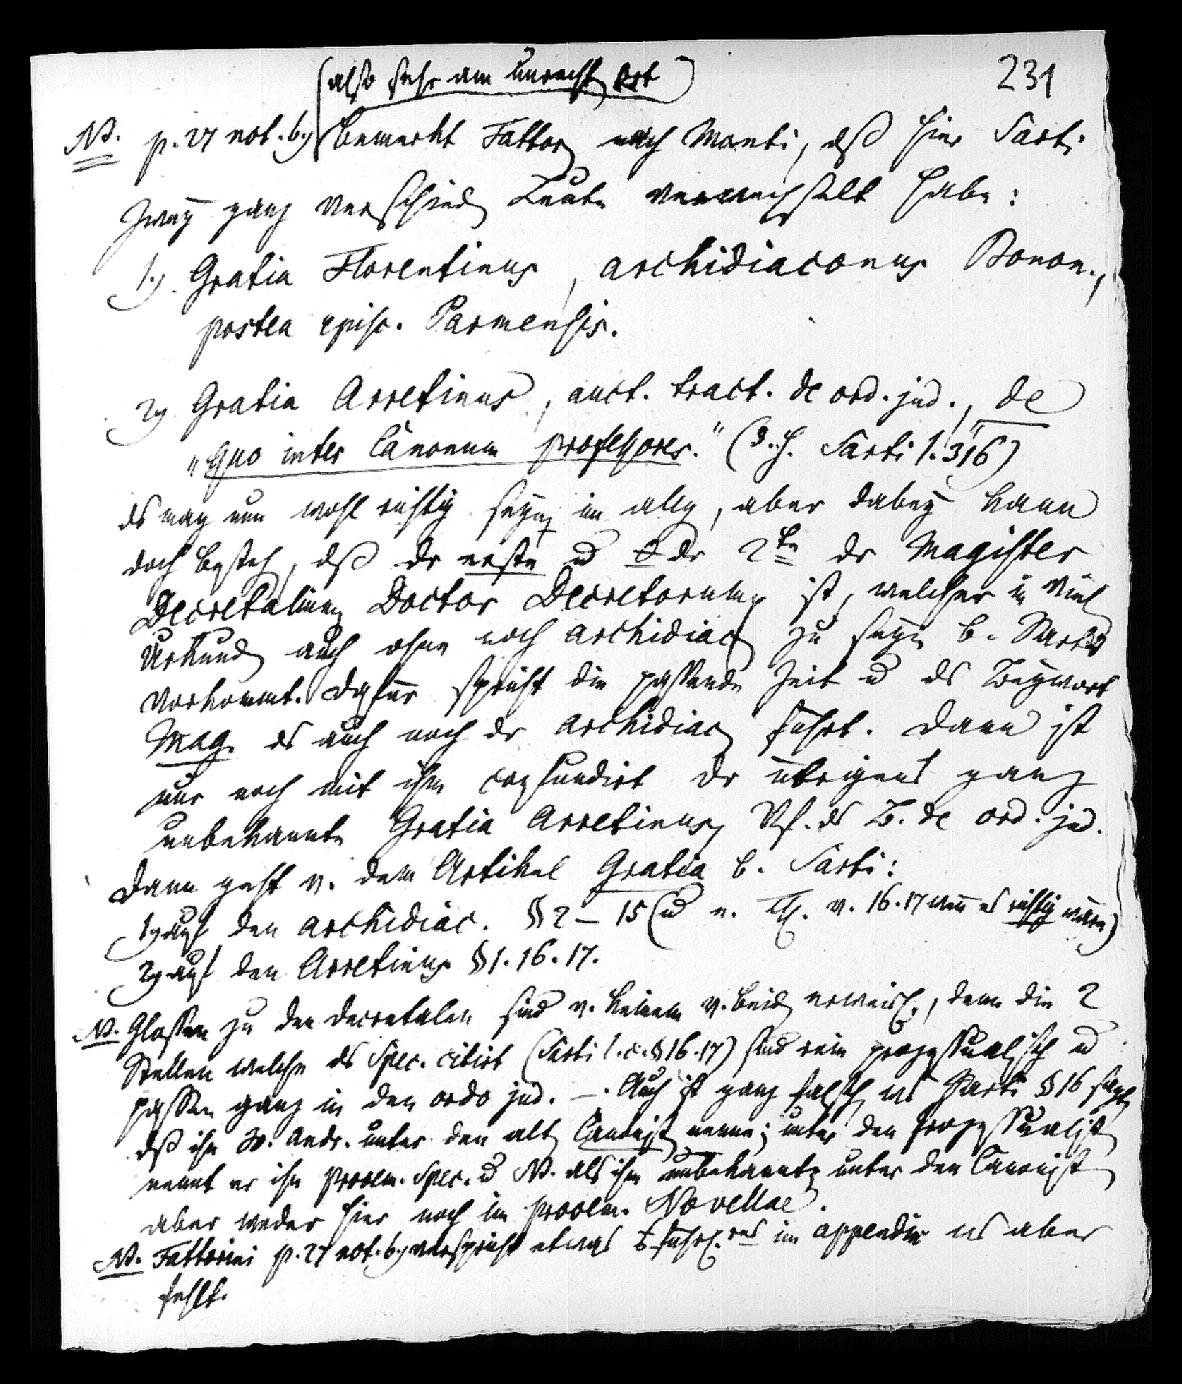 (also sehr am unrecht Ort)
231
NB. p. 27 not. b.) bemerkt Fattor. nach Monti, dß hier Sarti
zwey ganz verschied. Leute verwechselt habe:
1.) Gratia Florentinus, archidiaconus Bonon.,
postea episc. Parmensis.
2) Gratia Arretinus, auct. tract. de ord. jud., de
"quo inter Canonum professores." (S. h. Sarti l. 316)
ds mag nun wohl richtig seyn im allg, aber dabey kann
doch besteh, dß dr erste u dr 2te dr Magister
Decretalium Doctor Decretorum ist, welcher in viel
Urkund auch ohne noch archidiac zu seyn b. Sarti
vorkommt. dafür spricht die passende Zeit u ds Beywort
Mag. ds auch noch dr archidiac führt. Dann ist
nur noch mit ihm confundirt dr übrigens ganz
unbekannte Gratia Arretinus, Vf. ds B. de ord. jud.
Dann geht v. dem Artikel Gratia b. Sarti:
1) auf den archidiac. § 2 – 15 (u v. 16. 17 wenn es richtig wäre)
2) auf den Arretinus § 1. 16. 17.
NB. Glossen zu den Decretalen sind v. keinem v. beid erweisl., denn die 2
Stellen welche ds Spec. citirt (Sarti l. c. § 16. 17) sind rein prozessualisch u
passen ganz in den ordo jud. –. Auch ist ganz falsch was Sarti § 16 sagt
dß ihn Jo. Andr. unter den alt Canonist nenne; unter den Prozessualist
nennt er ihn prooem. Spec. u NB. als ihm unbekannt, unter den Canonist
aber weder hier noch im prooem. Novellae.
NB. Fattorini p. 27 not. b) verspricht etwas im appendix es aber
fehlt.